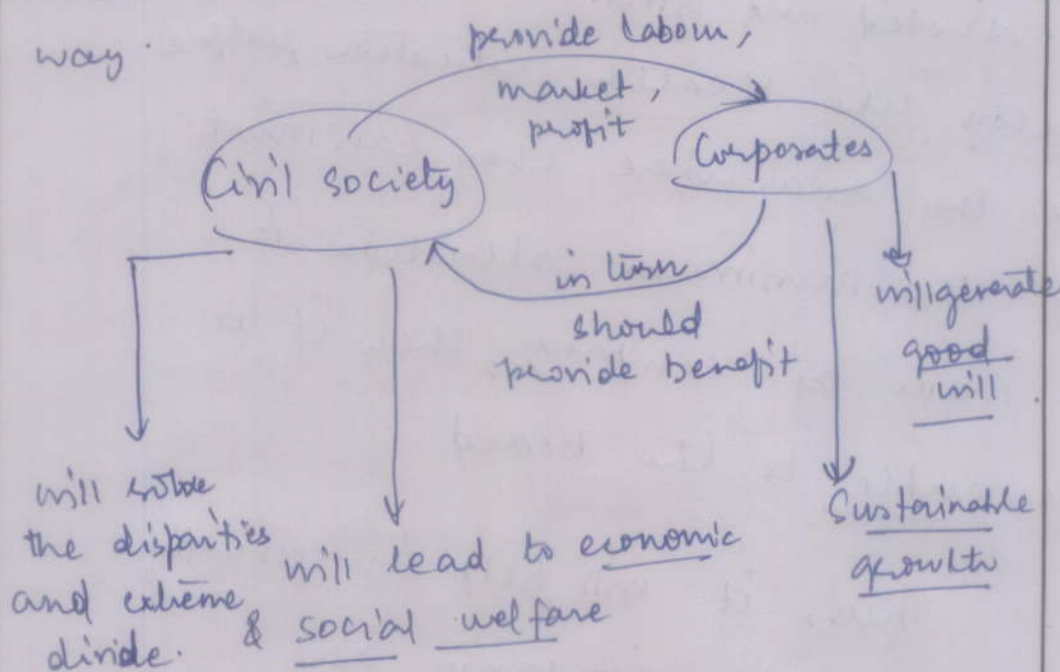 way.
provide labour,
market,
profit
Civil society
Corporates
in turn
should
provide benefit
will generate
good
will
Sustainable
growth
will solve
the disparities
and extreme
divide.
will lead to economic
& social welfare